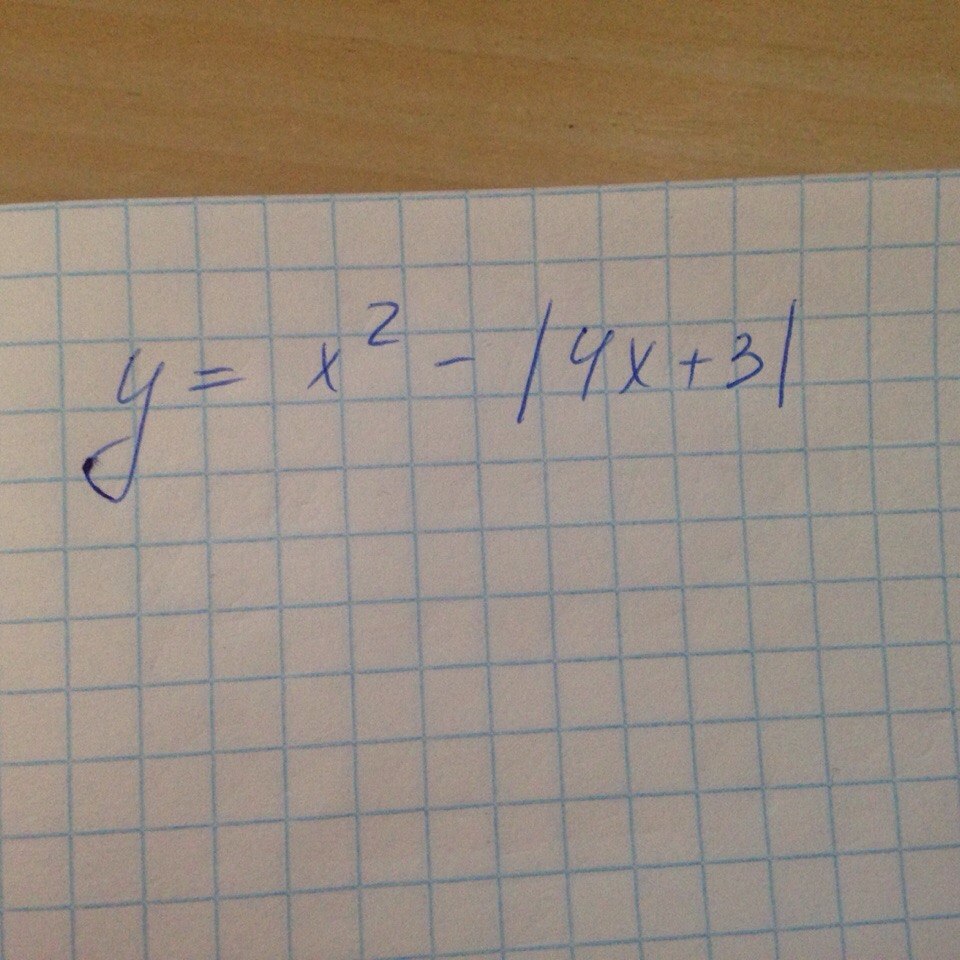 y = x² - |4x+3|